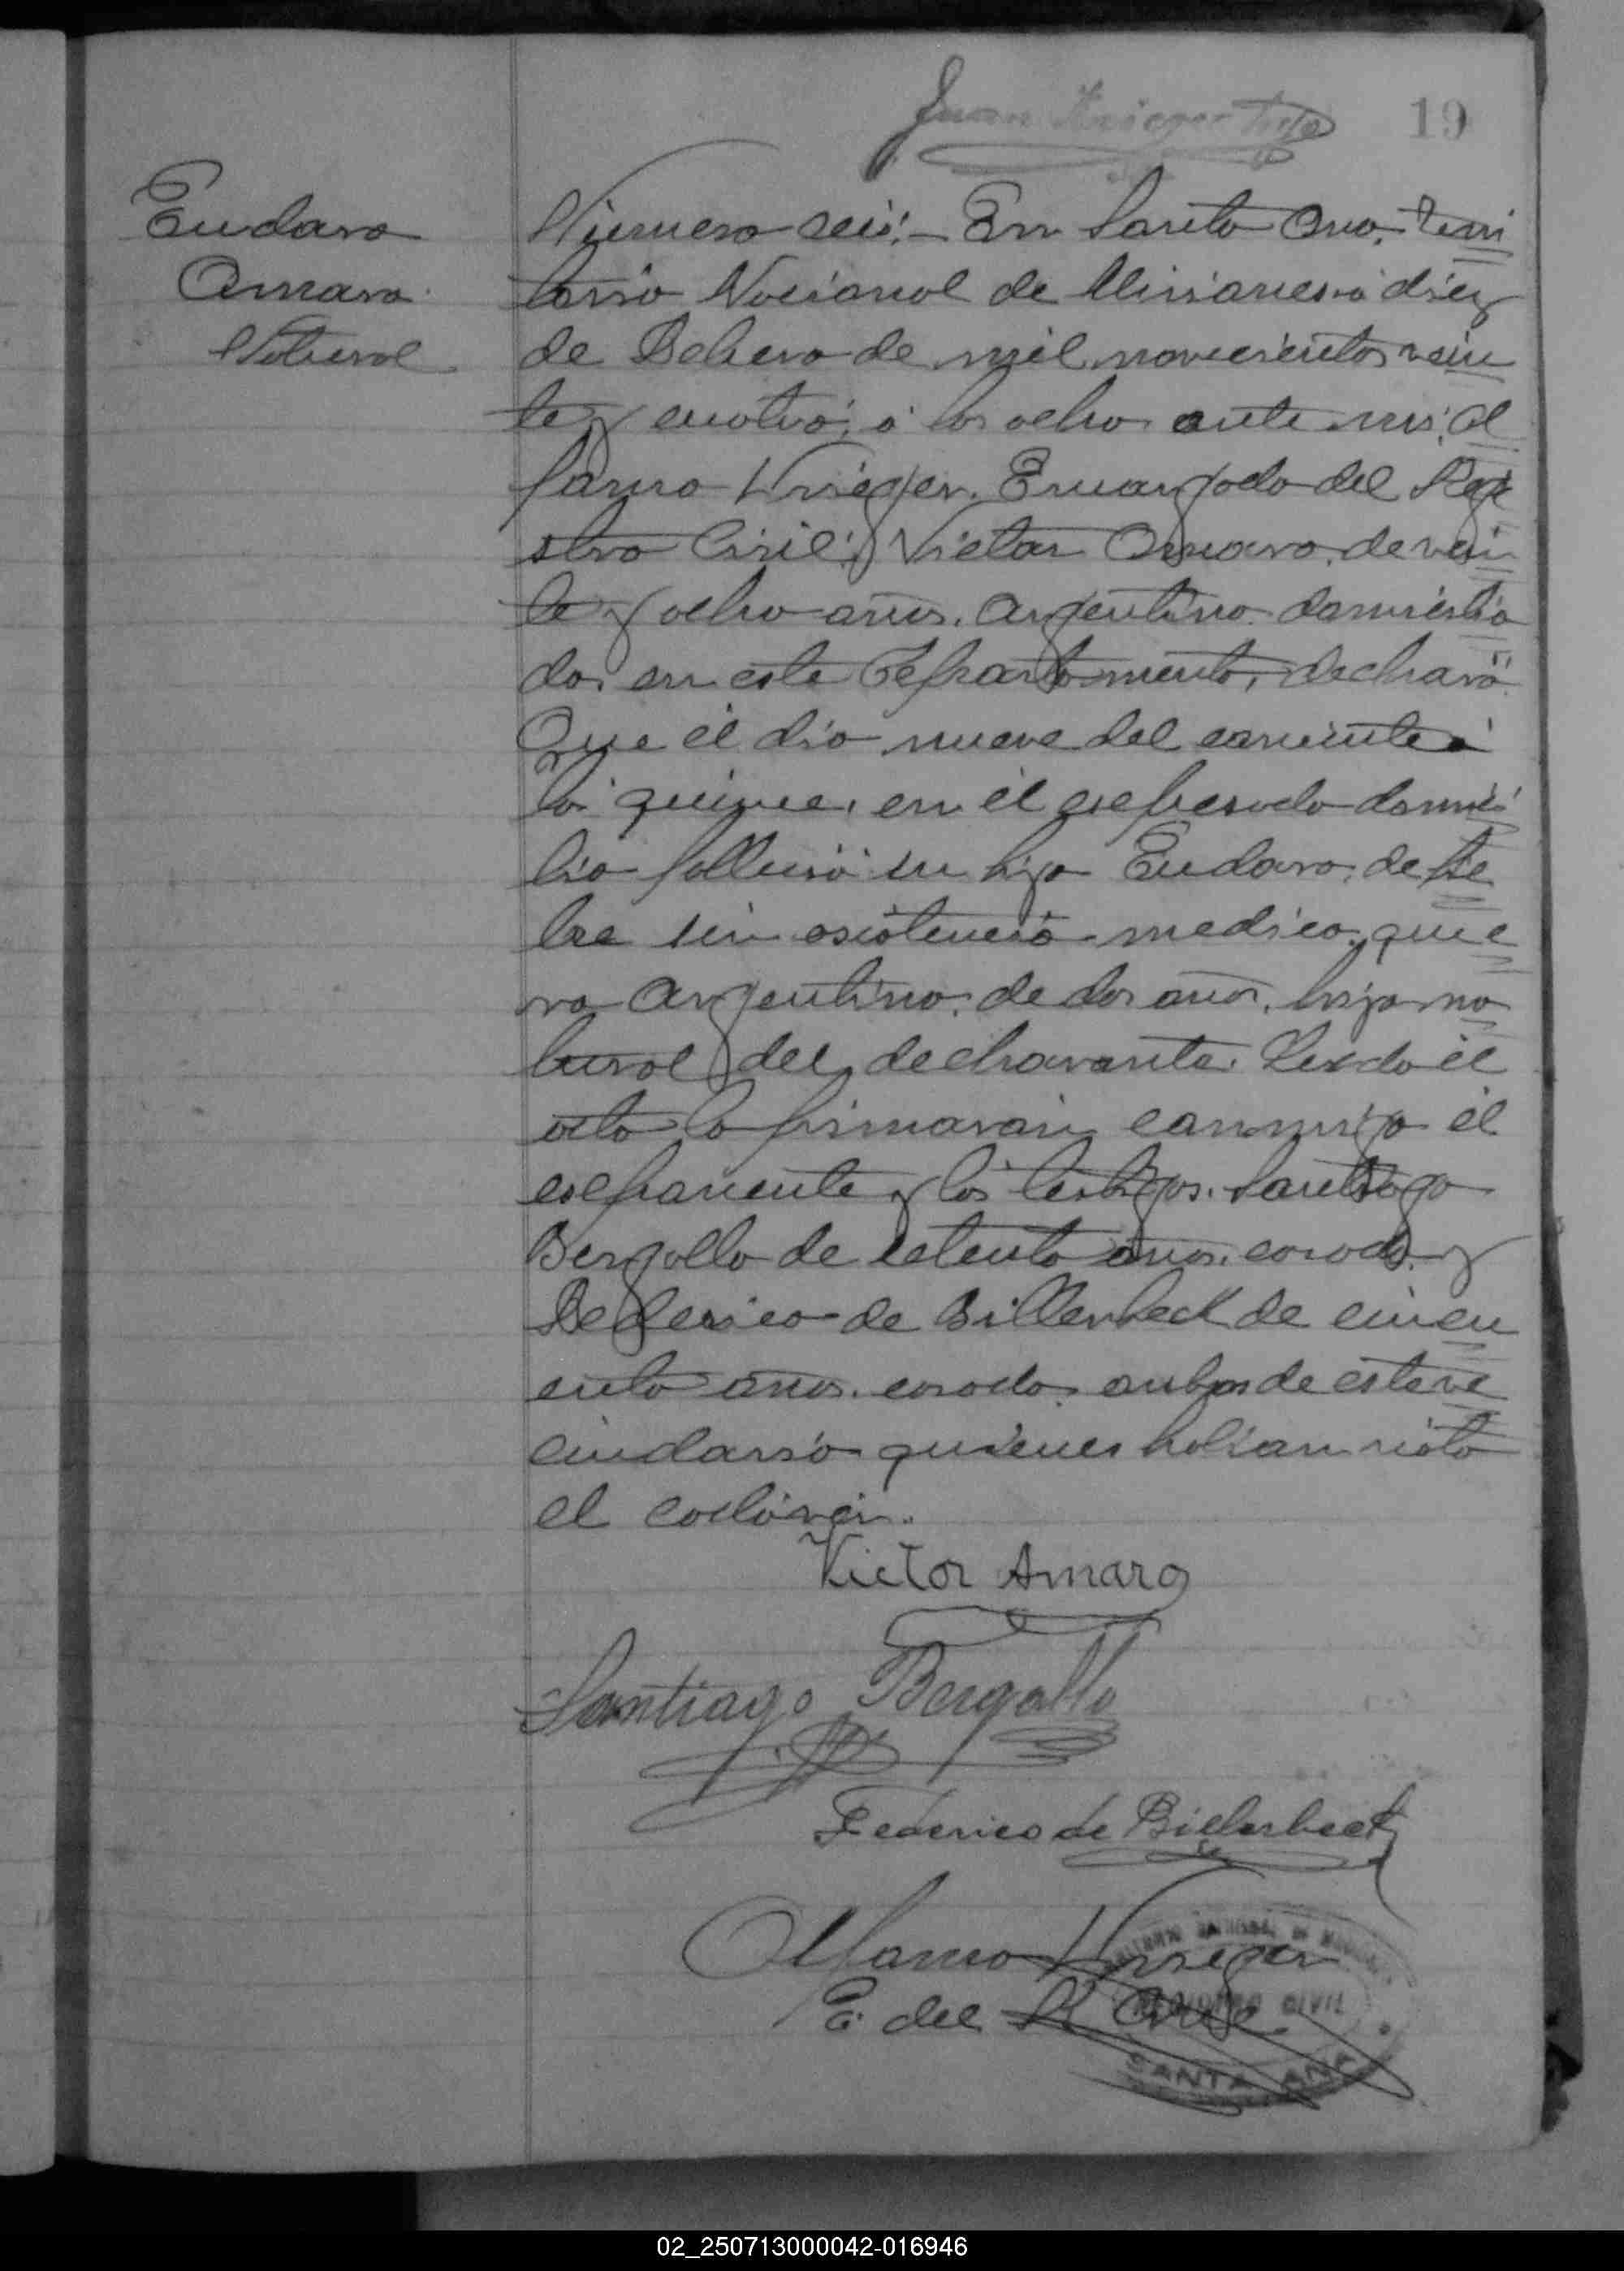 19
Eudaro
Amaro
Natural
Número seis: En Santa Ana, Terri
torio Nacional de Misiones a diez
de Febrero de mil novecientos vein
te y cuatro, á las ocho ante mi, Al
fonso Krieger, Encargado del Regi
stro Civil, Victor Amaro, de vein
te y ocho años, argentino, domicilia
do, en este Departamento, declaró
Que él dia nueve del corriente á
las quince, en él espresado domici
lio falleció su hijo Eudaro, de fie
bre sin asistencia medica, que e
ra argentino, de dos años, hijo na
tural del declarante. Leida él
acta la firmaran conmigo él
esponente y los testigos, Santiago
Bergallo de setenta años, casado y
Federico de Billerbeck de cincu
enta años, casado, ambos de este ve
cindario quienes habian visto
el cadáver.
Victor Amaro
Santiago Bergallo
Federico de Billerbeck
Alfonso Krieger
E. del R. Civil
REGISTRO CIVIL
SANTA ANA
02_250713000042-016946